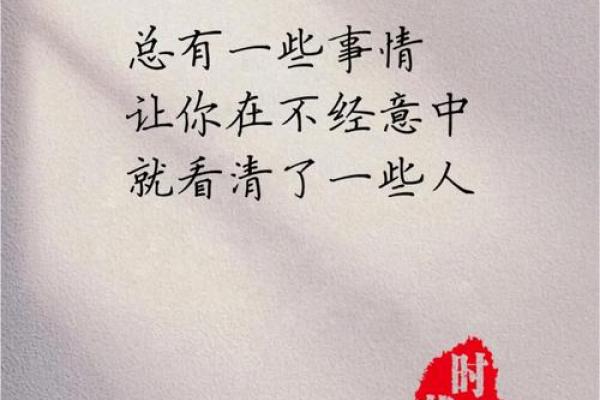 总有一些事情
让你在不经意中
就看清了一些人
时